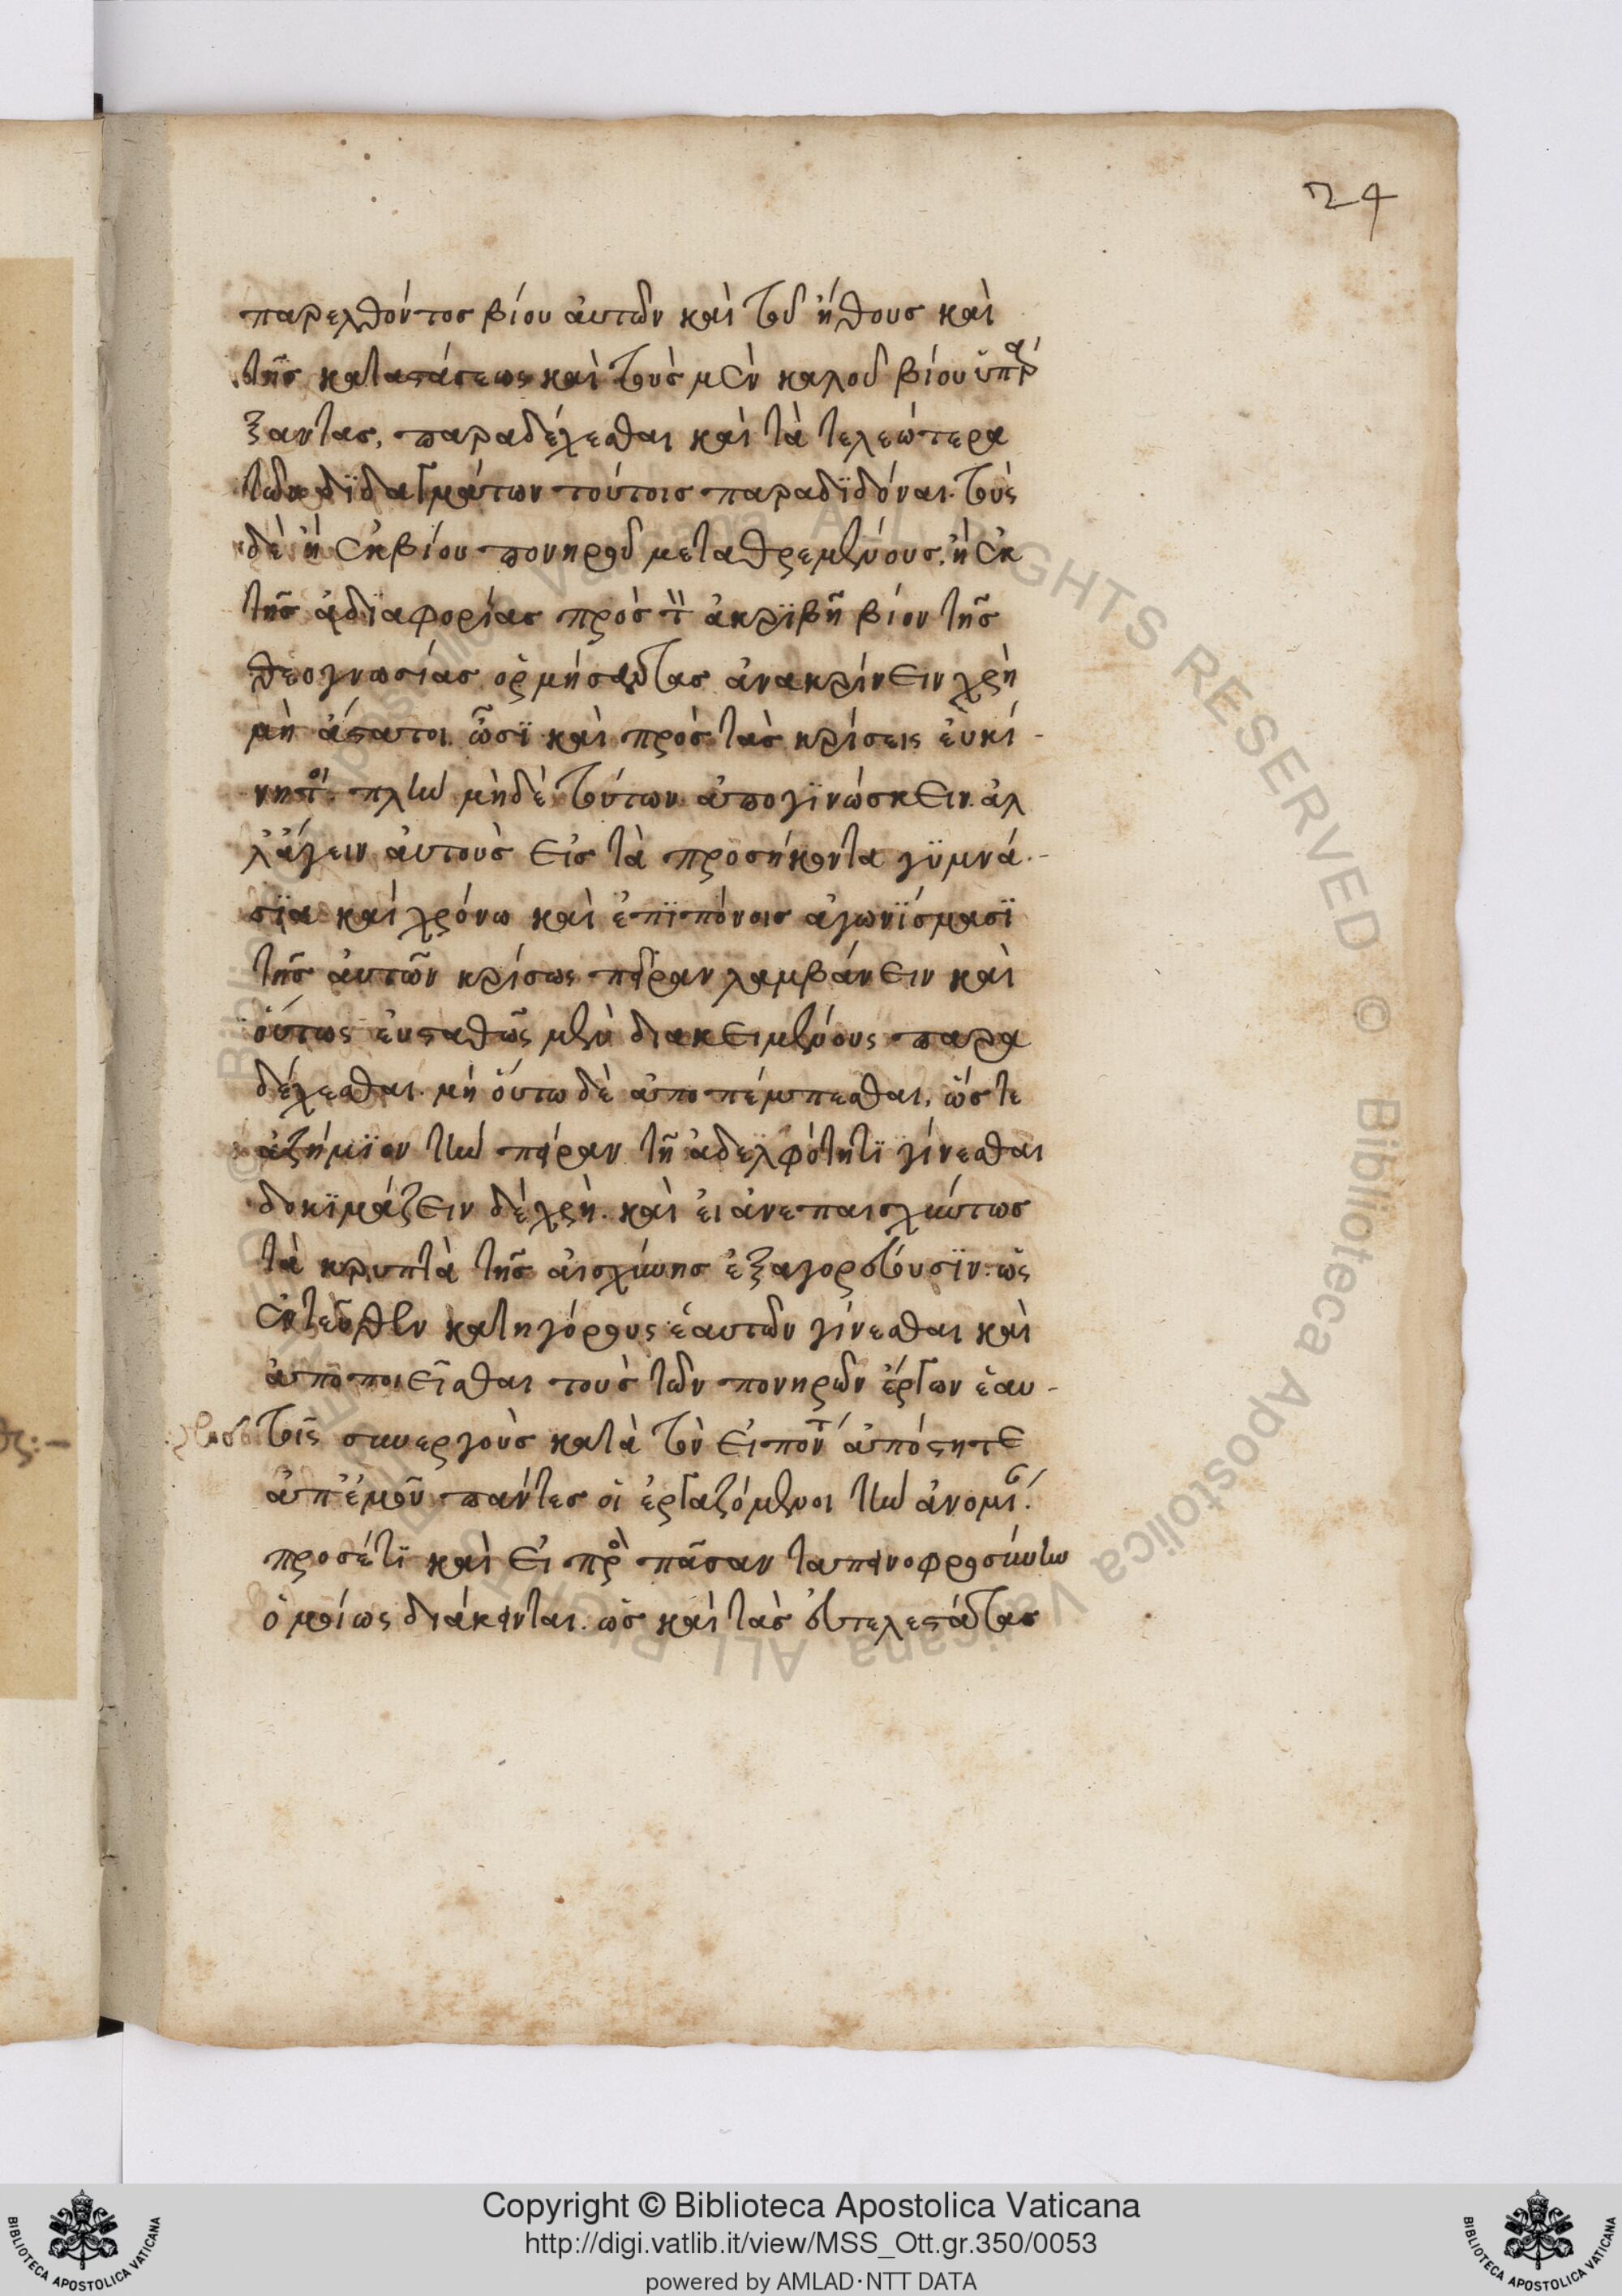 24
παρελθόντος βίου αὐτῶν καὶ τοῦ ἤθους καὶ
τῆς καταστάσεως καὶ τοὺς μὲν καλοῦ βίου ὑπάρ
ξαντας, παραδέχεσθαι καὶ τὰ τελεώτερα
τῶν διδαγμάτων τούτοις παραδϊδόναι. τοὺς
δὲ ἢ ἐκ βίου πονηροῦ μεταθρεμένους. ἢ ἐκ
τῆς ἀδϊαφορίας πρὸς τὸν ἀκρϊβῆ βίον τῆς
θεογνωσίας ὁρμήσαντας ἀνακρίνειν χρὴ
μὴ ἄστατοι ὦσϊ καὶ πρὸς τὰς κρίσεις εὐκί-
νητοι. πλὴν μὴδὲ τούτων ἀπογϊνώσκειν. ἀλ
λἄγειν αὐτοὺς εἰς τὰ προσήκοντα γϋμνά-
σϊα καὶ χρόνω καὶ ἐπϊπόνοις ἀγωνϊσμασϊ
τῆς αὐτῶν κρίσεως πεῖραν λαμβάνειν καὶ
οὕτως εὐσταθῶς μὲν διακειμένους παρα
δέχεσθαι. μὴ οὕτω δὲ ἀποπέμπεσθαι, ὥστε
ἀζήμϊον τὴν πεῖραν τῆ ἀδεϊλφότητϊ γίνεσθαι
δοκϊμάζειν δὲ χρὴ. καὶ εἰ ἀνεπαισχύντως
τὰ κρυπτὰ τῆς αἰσχύνης ἐξαγορεύουσϊν. ὡς
ἐντεῦθεν κατηγόρους ἑαυτῶν γίνεσθαι καὶ
ἀποποιεῖσθαι τοὺς τῶν πονηρῶν ἔργων ἑαυ-
τοῖς συνεργοὺς κατὰ τὸν εἰπόντα ἀπόστητε
ἀπ' ἐμοῦ πάντες οἱ ἐργαζόμενοι τὴν ἀνομίαν.
προσέτϊ καὶ εἰ πρὸς πᾶσαν ταπεινοφροσύνην
ὁμοίως διάκεινται. ὡς καὶ τὰς εὐτελεστάτας
Copyright © Biblioteca Apostolica Vaticana
http://digi.vatlib.it/view/MSS_Ott.gr.350/0053
powered by AMLAD·NTT DATA